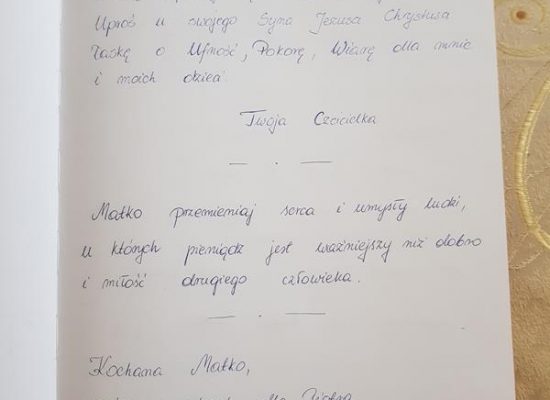 Uproś u swojego Syna Jezusa Chrystusa
Łaskę o Ufność, Pokorę, Wiarę dla mnie
i moich dzieci.
Twoja Czcicielka
Matko przemieniaj serca i umysły ludzi,
u których pieniądz jest ważniejszy niż dobro
i miłość drugiego człowieka.
Kochana Matko,